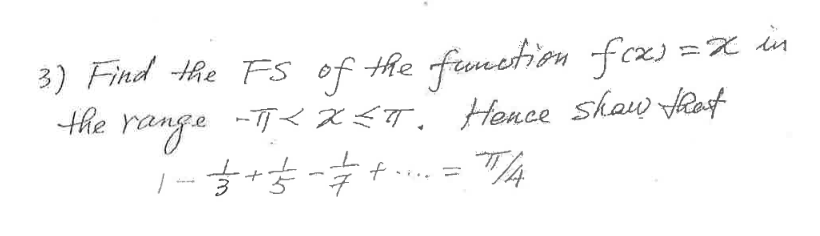 3) Find the FS of the function f(x) = x in
the range -π < x ≤ π. Hence show that
1 - 1/3 + 1/5 - 1/7 + .... = π/4